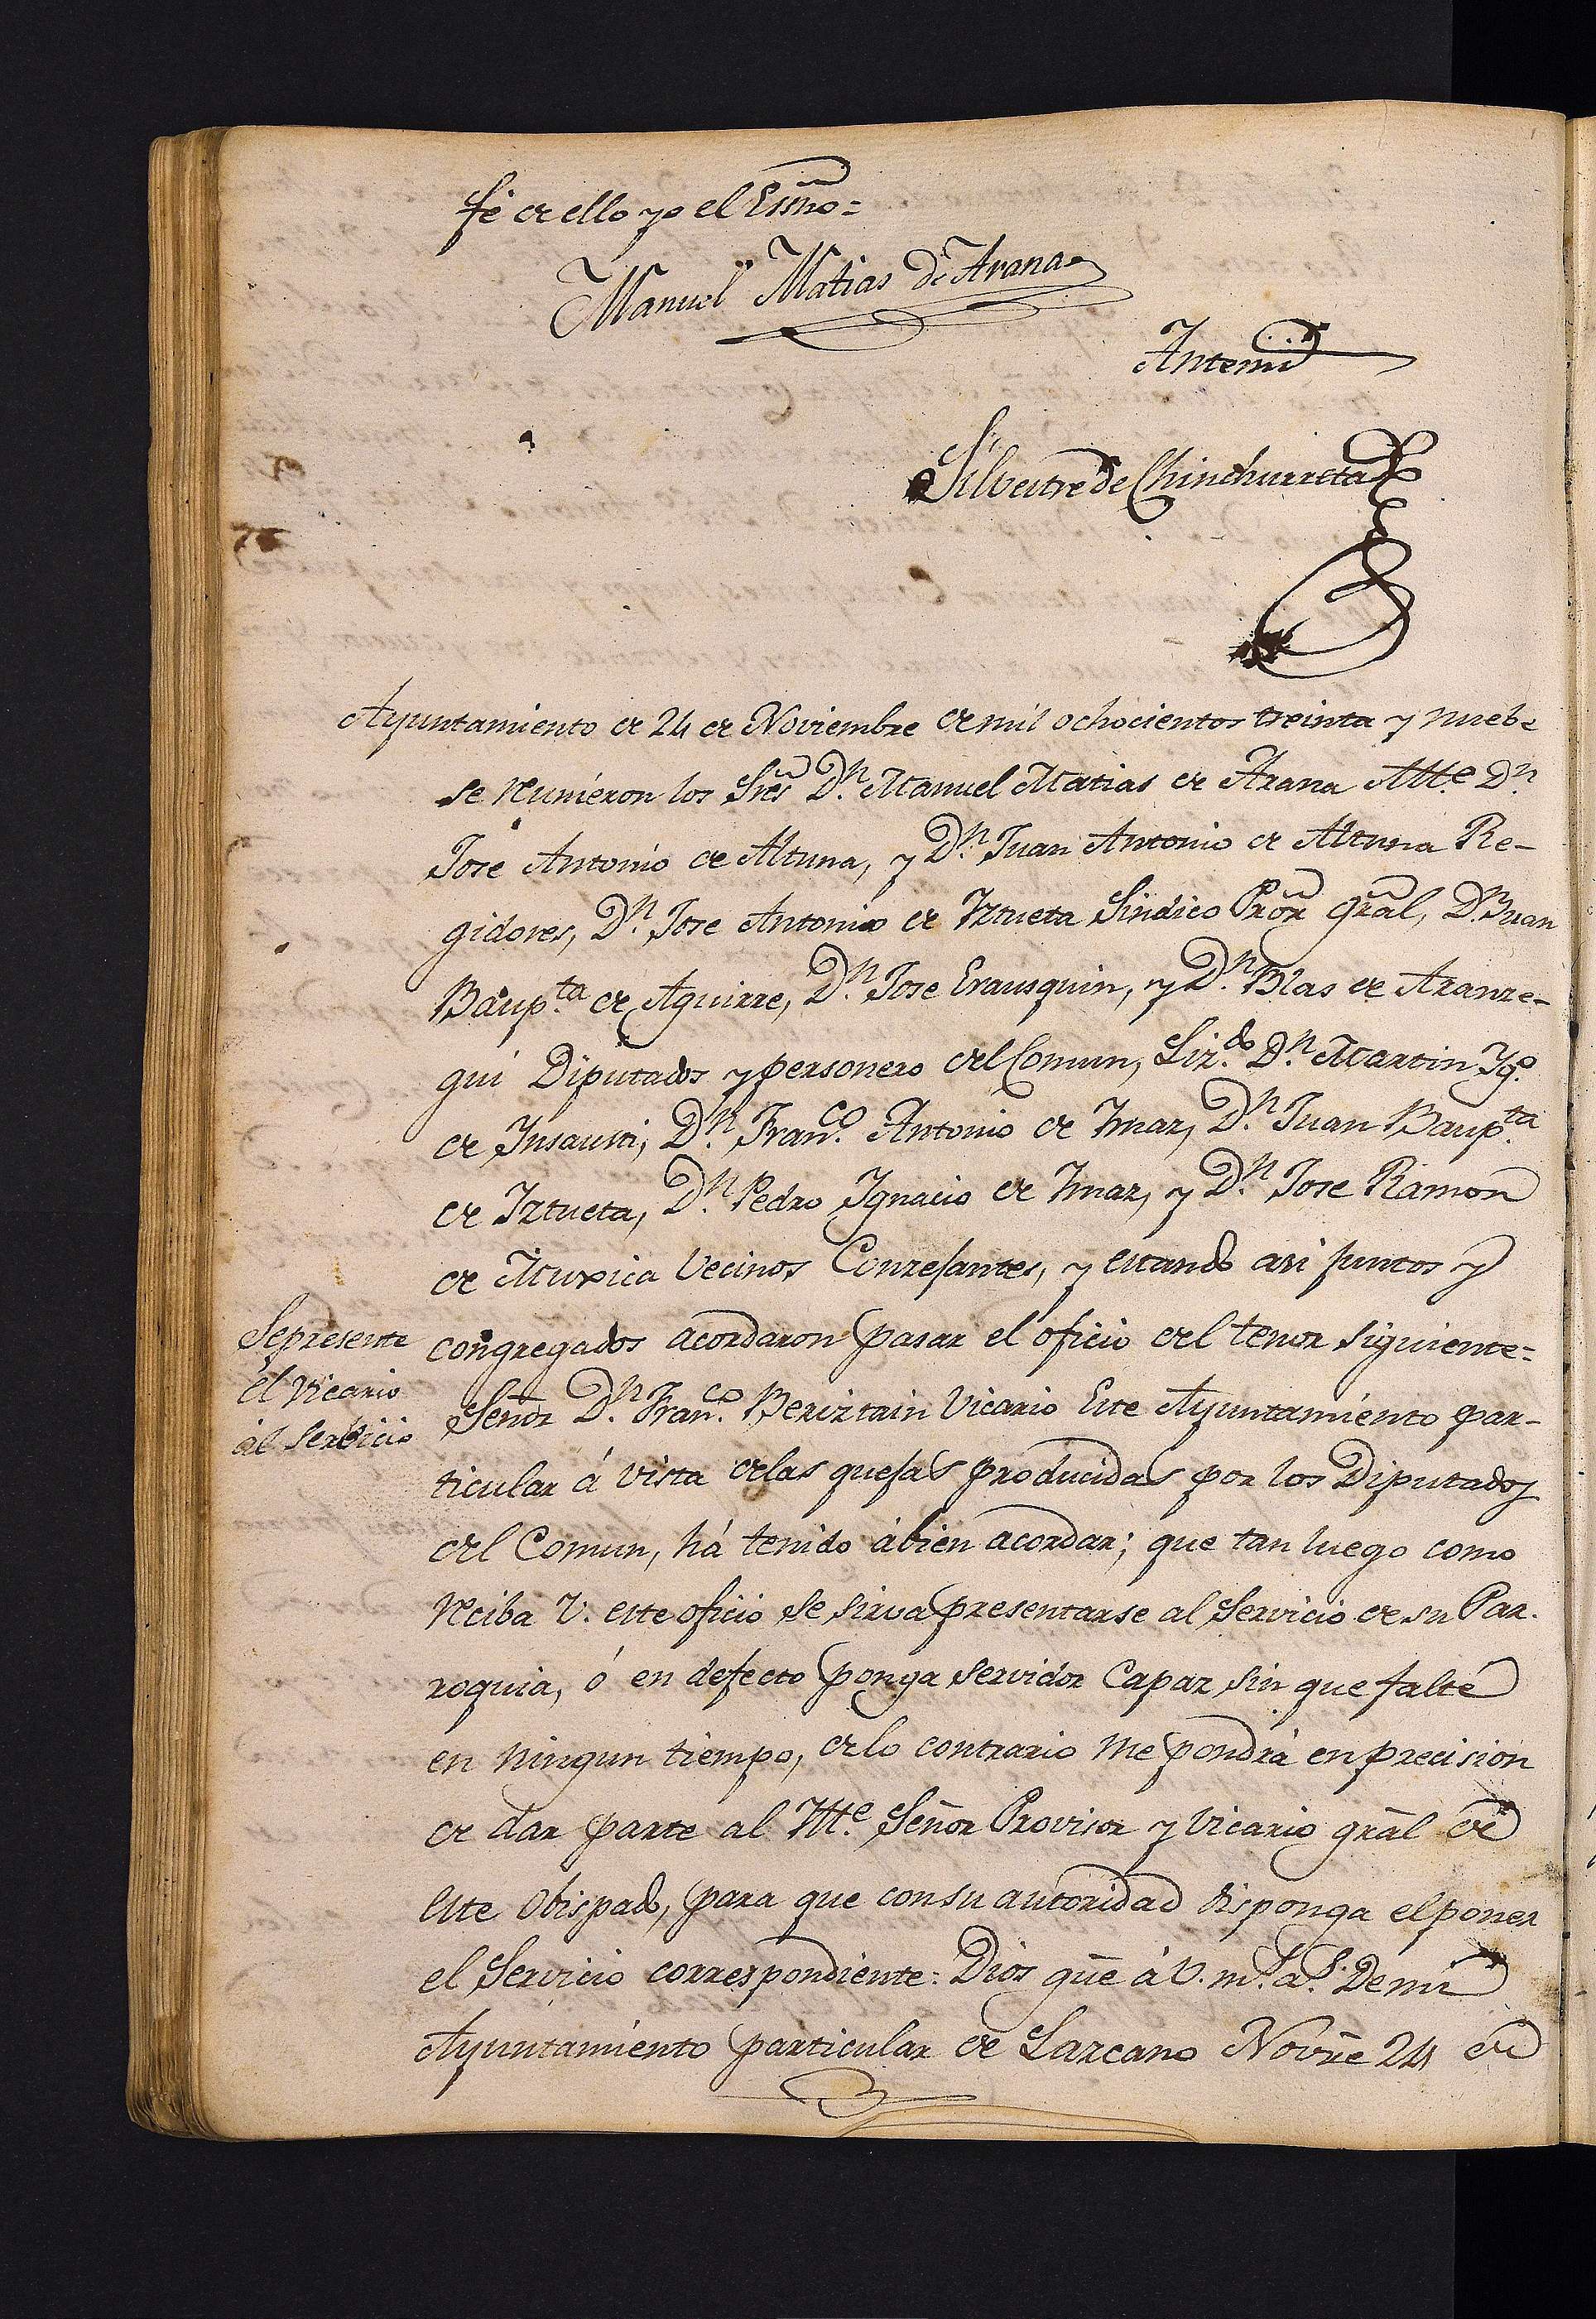 fé de ello yo el Essño=
Manuel Matias de Arana
Antemi
Silvestre de Chinchurreta
Ayuntamiento de 24 de Noviembre de mil ochocientos treinta y nuebe
se reunieron los Srẽs D.n Manuel Matias de Arana Alt.e D.n
Jose Antonio de Altuna, y D.n Juan Antonio de Altuna Re-
gidores, D.n Jose Antonio de Iztueta Sindico Prõr Grãl, D.n Juan
Baup.ta de Aguirre, D.n Jose Erausquin, y D.n Blas de Aranze-
gui Diputados y personero del Comun, Liz.do D.n Martin Yg.o
de Insausti, D.n Fran.co Antonio de Imaz, D.n Juan Baup.ta
de Iztueta, D.n Pedro Ygnacio de Imaz, y D.n Jose Ramon
de Muxica Vecinos Conzejantes, y estando asi juntos y
congregados acordaron pasar el oficio del tenor siguiente=
Se presente
el Vicario
al Serbicio
Señor D.n Fran.co Beriztain Vicario Este Ayuntamiento par-
ticular á vista delas quejas producidas por los Diputados
del Comun, há tenido ábien acordar; que tan luego como
reciba V. este oficio se sirva presentarse al Servicio de su Par-
roquia, ó en defecto ponga servidor Capaz sin que falte
en ningun tiempo, delo contrario me pondrá en precision
de dar parte al Ylt.e Señor Provisor y Vicario grãl de
este Obispado, para que consu autoridad disponga elponer
el Servicio correspondiente: Dios gũe á V. m.s a.s De mi
Ayuntamiento particular de Lazcano Novrẽ 24 de